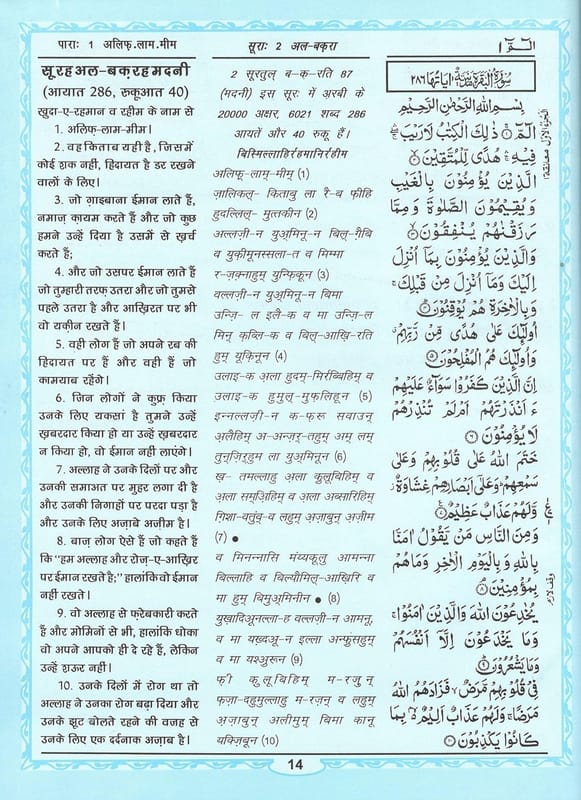 पाराः 1 अलिफ़्.लाम.मीम
सूरह अल-बक़रह मदनी
(आयात 286, रुकूआत 40)
ख़ुदा-ए-रहमान व रहीम के नाम से
1. अलिफ़-लाम-मीम।
2. वह किताब यही है, जिसमें
कोई शक नहीं, हिदायत है डर रखने
वालों के लिए।
3. जो ग़ाइबाना ईमान लाते हैं,
नमाज़ क़ायम करते हैं और जो कुछ
हमने उन्हें दिया है उसमें से ख़र्च
करते हैं;
4. और जो उसपर ईमान लाते हैं
जो तुम्हारी तरफ़ उतरा और जो तुमसे
पहले उतरा है और आख़िरत पर भी
वो यक़ीन रखते हैं।
5. वही लोग हैं जो अपने रब की
हिदायत पर हैं और वही हैं जो
कामयाब रहेंगे।
6. जिन लोगों ने कुफ़्र किया
उनके लिए यकसां है तुमने उन्हें
ख़बरदार किया हो या उन्हें ख़बरदार
न किया हो, वो ईमान नहीं लाएंगे।
7. अल्लाह ने उनके दिलों पर और
उनकी समाअत पर मुहर लगा दी है
और उनकी निगाहों पर परदा पड़ा है
और उनके लिए अज़ाबे अज़ीम है।
8. बाज़ लोग ऐसे हैं जो कहते हैं
कि “हम अल्लाह और रोज़-ए-आख़िर
पर ईमान रखते है;” हालांकि वो ईमान
नहीं रखते।
9. वो अल्लाह से फ़रेबकारी करते
हैं और मोमिनों से भी, हालांकि धोका
वो अपने आपको ही दे रहे हैं, लेकिन
उन्हें शऊर नहीं।
10. उनके दिलों में रोग था तो
अल्लाह ने उनका रोग बढ़ा दिया और
उनके झूट बोलते रहने की वजह से
उनके लिए एक दर्दनाक अज़ाब है।
सूराः 2 अल-बक़रा
2 सूरतुल् ब-क़-रति 87
(मदनी) इस सूरः में अ़रबी के
20000 अक्षर, 6021 शब्द 286
आयतें और 40 रुकू हैं।
बिस्मिल्लाहिर्रहमानिर्रहीम
अलिफ़्-लाम्-मीम् (1)
ज़ालिकल्- किताबु ला रै-ब फीहि
हुदल्लिल्- मुत्तकीन (2)
अल्लज़ी-न युअ्मिनू-न बिल्-ग़ैबि
व युक़ीमूनस्सला-त व मिम्मा
र-ज़क़्नाहुम् युन्फिकून (3)
वल्लज़ी-न युअ्मिनू-न बिमा
उन्ज़ि- ल इलै-क व मा उन्ज़ि-ल
मिन् क़ब्लि-क व बिल्-आख़ि-रति
हुम् यूक़िनून (4)
उलाइ-क अ़ला हुदम्-मिर्रब्बिहिम् व
उलाइ-क हुमुल्-मुफ्लिहून (5)
इन्नल्लज़ी-न क-फ़रू सवाउन्
अ़लैहिम् अ-अन्ज़र्-तहुम् अम् लम्
तुन्ज़िर्हुम ला युअ्मिनून (6)
ख़- तमल्लाहु अ़ला कुलूबिहिम् व
अ़ला समअ़िहिम् व अ़ला अब्सारिहिम्
ग़िशा-वतुंव् व लहुम् अ़ज़ाबुन् अ़ज़ीम
(7) ●
व मिनन्नासि मंय्यकूलु आमन्ना
बिल्लाहि व बिल्यौमिल्-आख़िरि व
मा हुम् बिमुअ्मिनीन ● (8)
युख़ादिअूनल्ला-ह वल्लज़ी-न आमनू,
व मा यख़्दअू-न इल्ला अन्फु़सहुम्
व मा यश्अुरून (9)
फी कुलूबिहिम् म-रजुन्
फ़ज़ा-दहुमुल्लाहु म-रज़न् व लहुम्
अ़ज़ाबुन् अलीमुम् बिमा कानू
यक्ज़िबून (10)
الٓمّٓ ١
سُوْرَةُ الْبَقَرَةِ مَدَنِيَّةٌ اٰيَاتُهَا ٢٨٦
بِسْمِ اللّٰهِ الرَّحْمٰنِ الرَّحِيْمِ
الٓمّٓ ۚ ذٰلِكَ الْكِتٰبُ لَا رَيْبَ
فِيْهِ هُدًى لِّلْمُتَّقِيْنَ
الَّذِيْنَ يُؤْمِنُوْنَ بِالْغَيْبِ
وَيُقِيْمُوْنَ الصَّلٰوةَ وَمِمَّا
رَزَقْنٰهُمْ يُنْفِقُوْنَ
وَالَّذِيْنَ يُؤْمِنُوْنَ بِمَآ اُنْزِلَ
اِلَيْكَ وَمَآ اُنْزِلَ مِنْ قَبْلِكَ
وَبِالْاٰخِرَةِ هُمْ يُوْقِنُوْنَ
اُولٰٓئِكَ عَلٰى هُدًى مِّنْ رَّبِّهِمْ
وَاُولٰٓئِكَ هُمُ الْمُفْلِحُوْنَ ٥
اِنَّ الَّذِيْنَ كَفَرُوْا سَوَآءٌ عَلَيْهِمْ
ءَاَنْذَرْتَهُمْ اَمْ لَمْ تُنْذِرْهُمْ
لَا يُؤْمِنُوْنَ ٦
خَتَمَ اللّٰهُ عَلٰى قُلُوْبِهِمْ وَعَلٰى
سَمْعِهِمْ وَعَلٰٓى اَبْصَارِهِمْ غِشَاوَةٌ
وَّلَهُمْ عَذَابٌ عَظِيْمٌ
وَمِنَ النَّاسِ مَنْ يَّقُوْلُ اٰمَنَّا
بِاللّٰهِ وَبِالْيَوْمِ الْاٰخِرِ وَمَا هُمْ
بِمُؤْمِنِيْنَ
يُخٰدِعُوْنَ اللّٰهَ وَالَّذِيْنَ اٰمَنُوْا
وَمَا يَخْدَعُوْنَ اِلَّآ اَنْفُسَهُمْ
وَمَا يَشْعُرُوْنَ
فِيْ قُلُوْبِهِمْ مَّرَضٌ فَزَادَهُمُ اللّٰهُ
مَرَضًا وَلَهُمْ عَذَابٌ اَلِيْمٌ بِمَا
كَانُوْا يَكْذِبُوْنَ
14